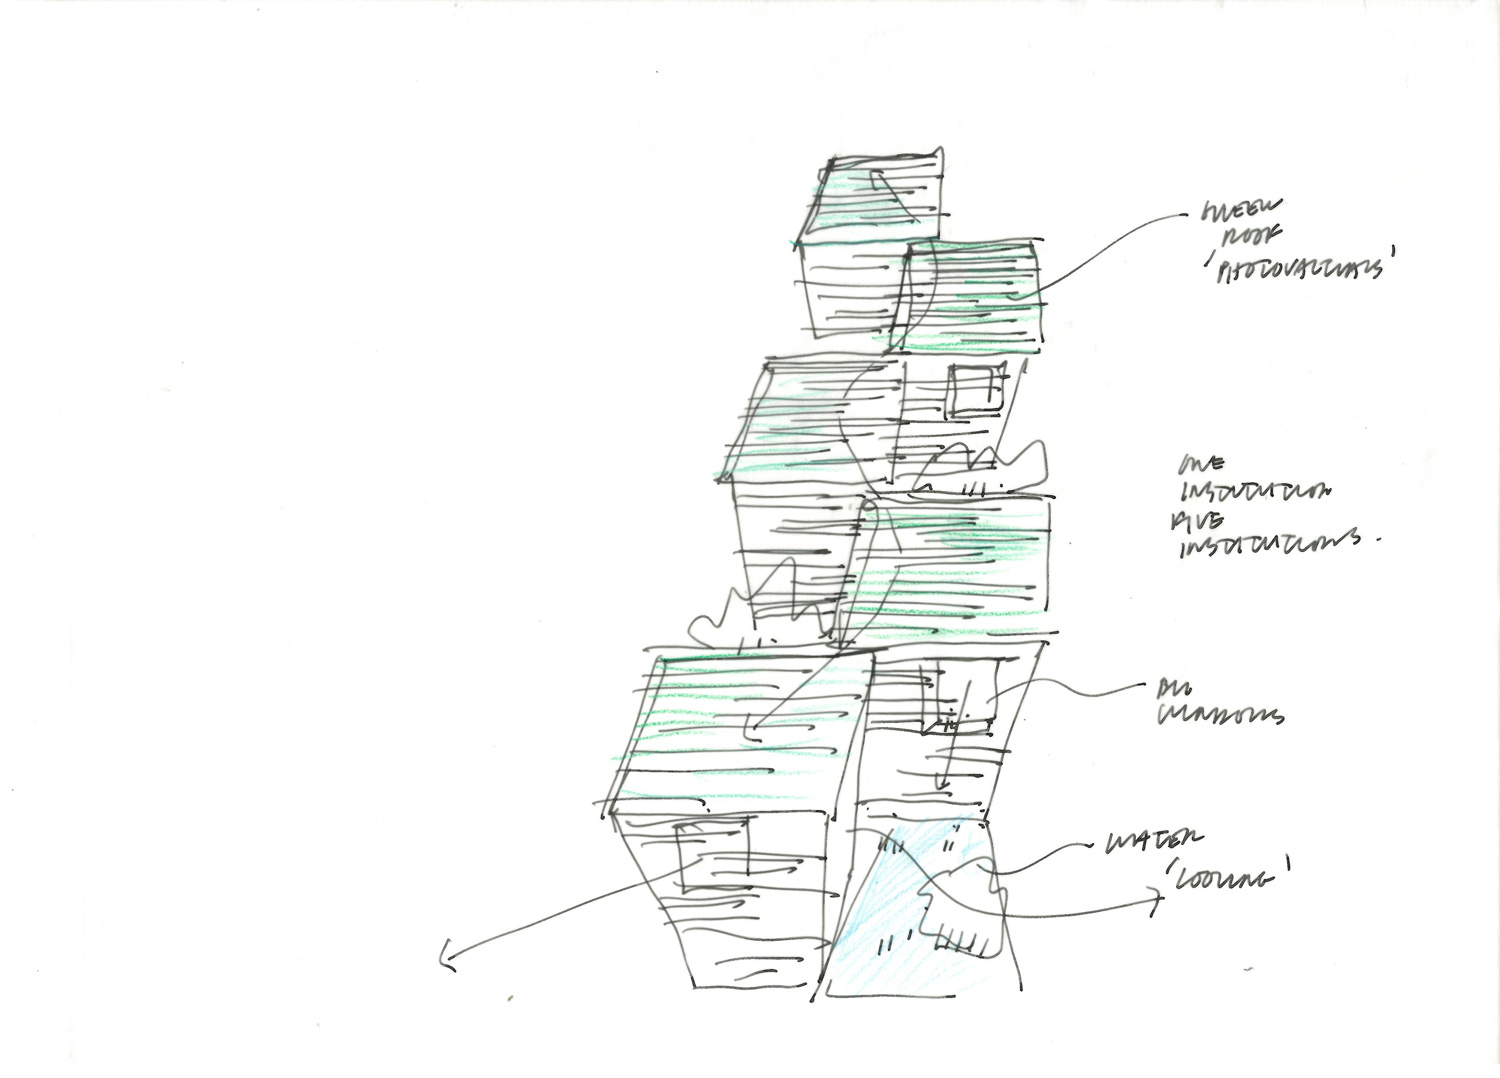 GREEN
ROOF
'PHOTOVALTIAKS'
ONE
INSTITUTION
FIVE
INSTITUTIONS.
BIG
WINDOWS
WATER
'COOLING'